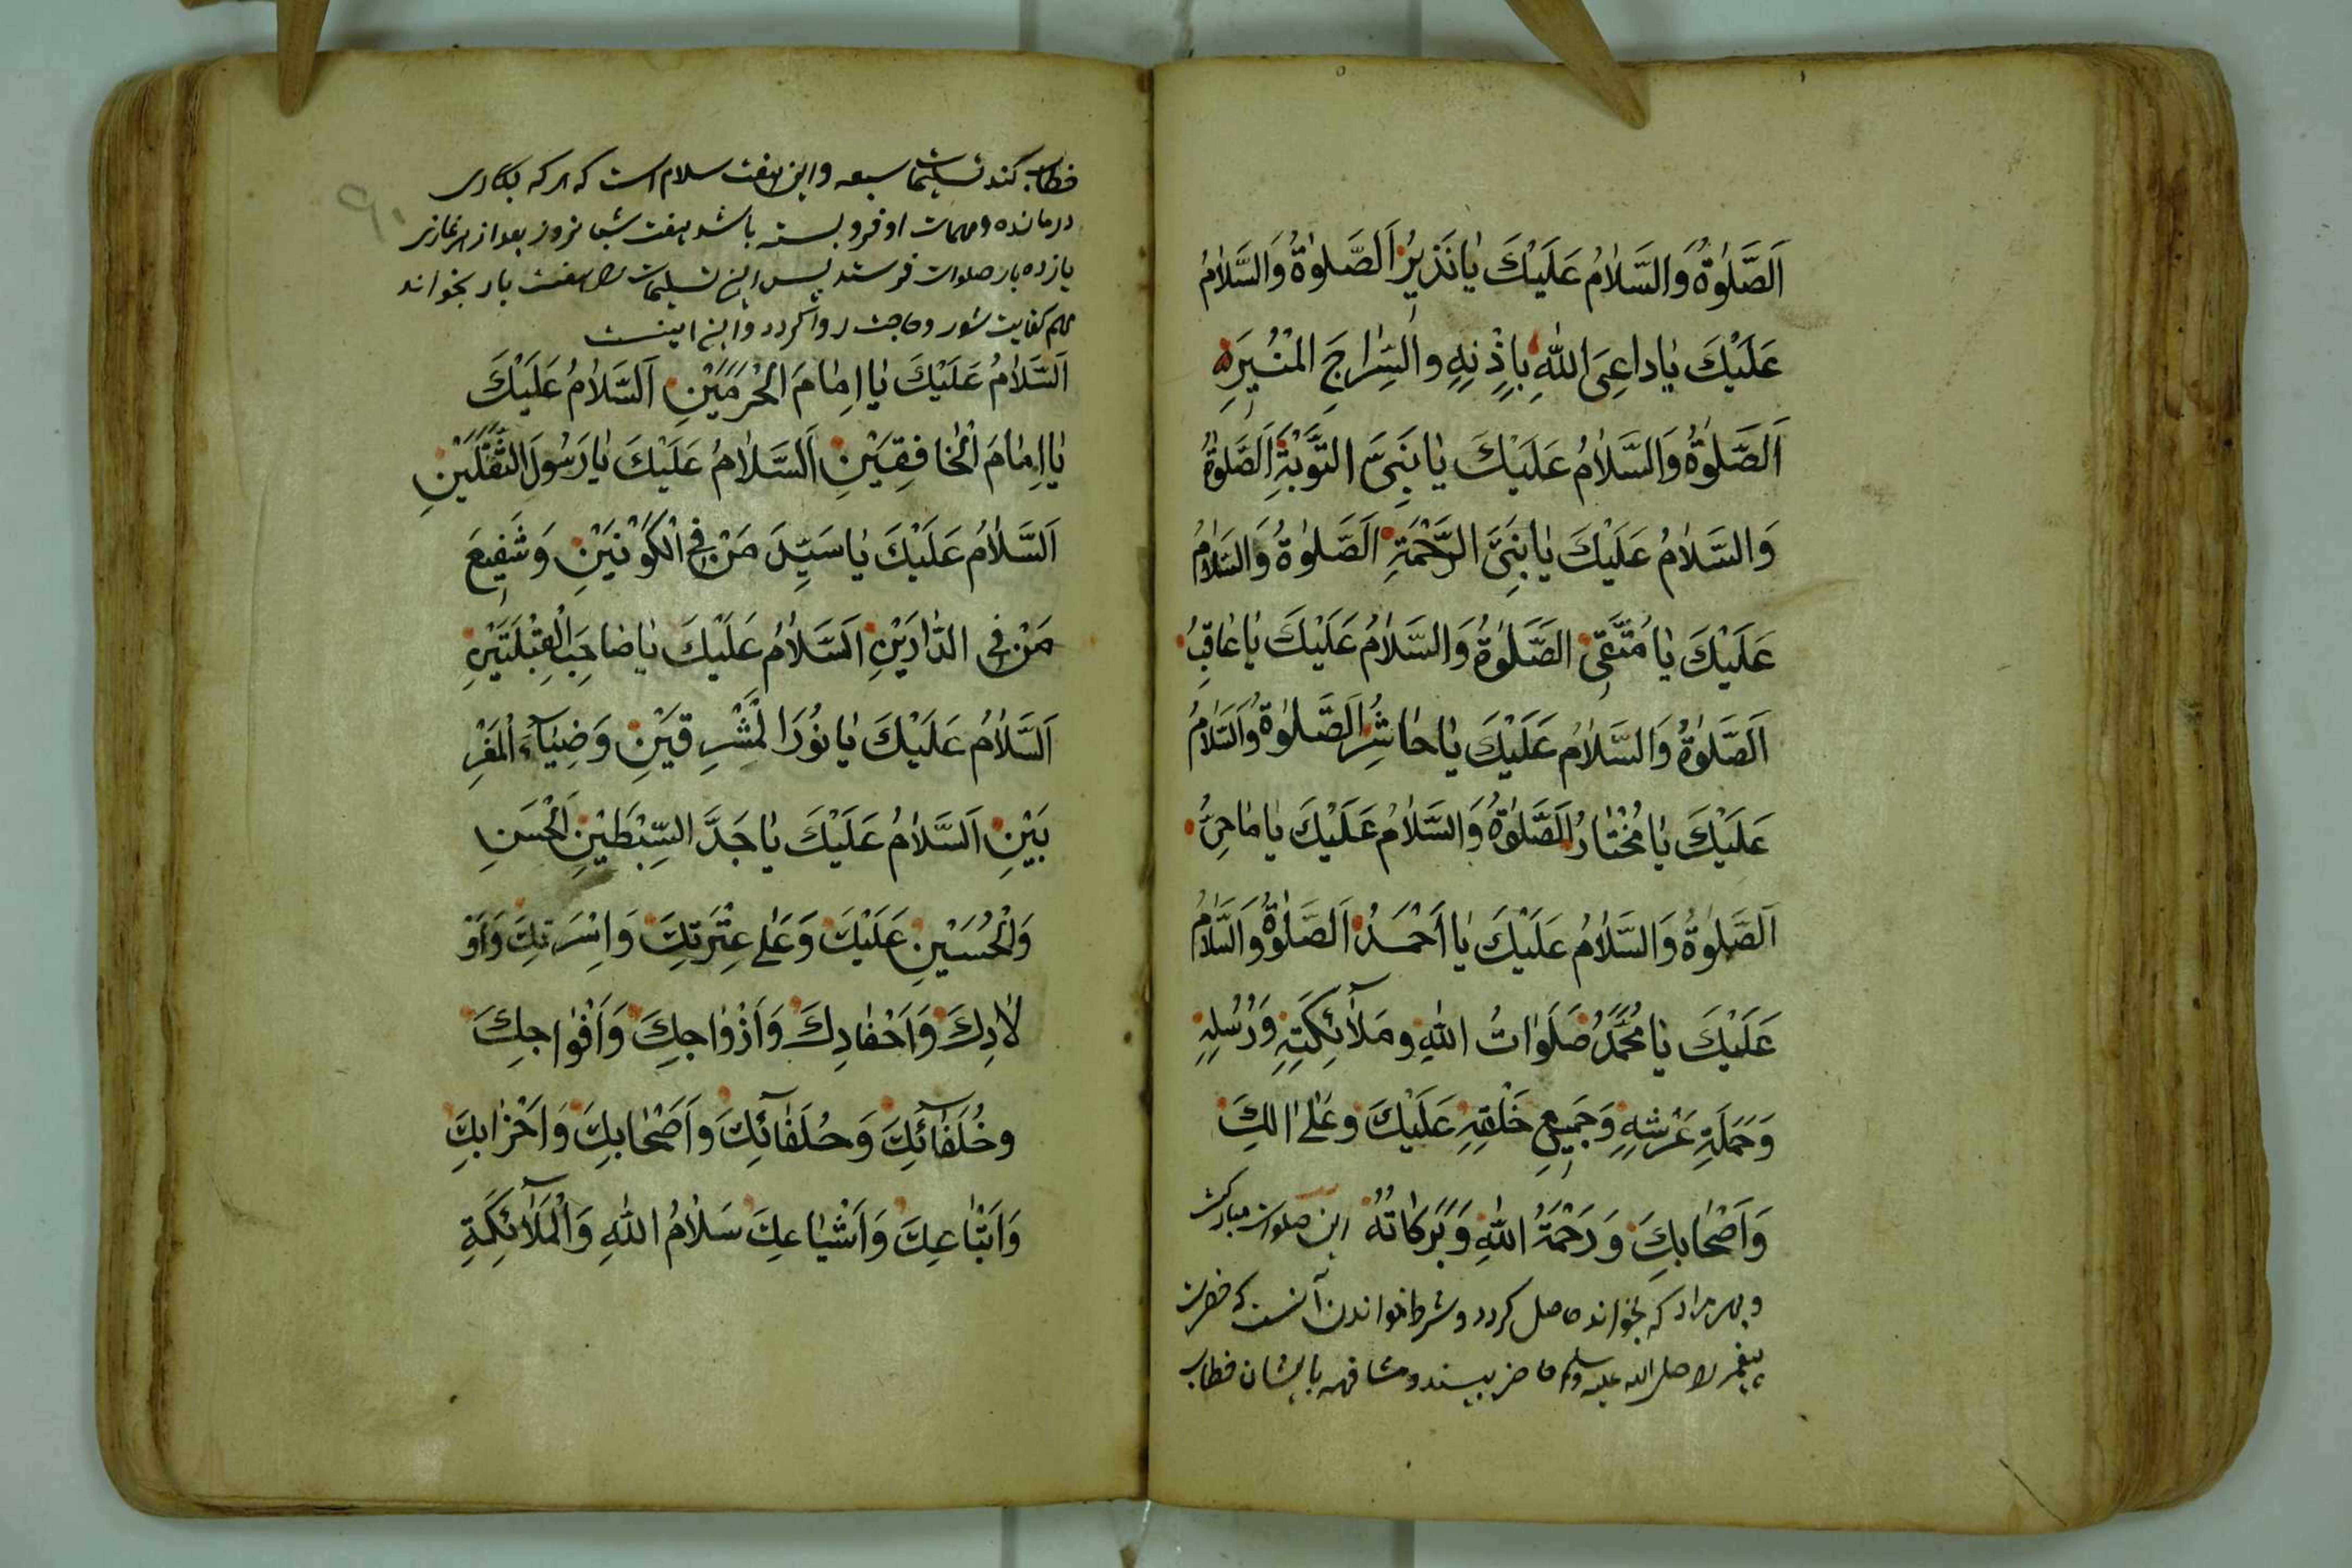 اَلصَّلٰوةُ وَالسَّلٰامُ عَلَيْكَ يٰا نَذِيرُ اَلصَّلٰوةُ وَالسَّلٰامُ
عَلَيْكَ يٰا داعِىَ اللّٰهِ بِاِذْنِهِ والسِّرٰاجَ المُنْيرَ
اَلصَّلٰوةُ وَالسَّلٰامُ عَلَيْكَ يٰا نَبِىَّ التَّوْبَةِ اَلصَّلٰوةُ
وَالسَّلٰامُ عَلَيْكَ يٰا نَبِىَّ الرَّحْمَةِ اَلصَّلٰوةُ وَالسَّلٰامُ
عَلَيْكَ يٰا مُقَفِّى الصَّلٰوةُ وَالسَّلٰامُ عَلَيْكَ يٰا عٰاقِبُ
اَلصَّلٰوةُ وَالسَّلٰامُ عَلَيْكَ يٰا حٰاشِرُ اَلصَّلٰوةُ وَالسَّلٰامُ
عَلَيْكَ يٰا مُخْتٰارُ اَلصَّلٰوةُ وَالسَّلٰامُ عَلَيْكَ يٰا مٰاحِىُ
اَلصَّلٰوةُ وَالسَّلٰامُ عَلَيْكَ يٰا اَحْمَدُ اَلصَّلٰوةُ وَالسَّلٰامُ
عَلَيْكَ يٰا مُحَمَّدُ صَلَوٰاتُ اللّٰهِ ومَلٰآئِكَتِهِ وَرُسُلِهِ
وَحَمَلَةِ عَرْشِهِ وَجَمِيعِ خَلْقِهِ عَلَيْكَ وعَلٰى اٰلِكَ
وَاَصْحٰابِكَ وَرَحْمَةُ اللّٰهِ وَبَرَكٰاتُهُ این صلوات مبارکست
و بهر مراد که بخواند حاصل کردد و شرط خواندن آنست که حضرت
پیغمبر را صلی الله علیه وسلم حاضر بیند و مشافهه با ایشان خطاب
خطاب کند تسلیمات سبعه و این هفت سلام است که هر که بکاری
درمانده و مهمات او فرو بسته باشد هفت شبانروز بعد از هر نمازی
یازده بار صلوات فرستد پس این تسلیمات را هفت بار بخواند
مهم کفایت شود و حاجت روا کردد و این اینست
اَلسَّلٰامُ عَلَيْكَ يٰا اِمٰامَ الْحَرَمَيْنِ اَلسَّلٰامُ عَلَيْكَ
يٰا اِمٰامَ الْخٰافِقَيْنِ اَلسَّلٰامُ عَلَيْكَ يٰا رَسُولَ الثَّقَلَيْنِ
اَلسَّلٰامُ عَلَيْكَ يٰا سَيِّدَ مَنْ فِى الْكَوْنَيْنِ وَشَفِيعَ
مَنْ فِى الدّٰارَيْنِ اَلسَّلٰامُ عَلَيْكَ يٰا صٰاحِبَ الْقِبْلَتَيْنِ
اَلسَّلٰامُ عَلَيْكَ يٰا نُورَ الْمَشْرِقَيْنِ وَضِيٰآءَ الْمَغْرِ
بَيْنِ اَلسَّلٰامُ عَلَيْكَ يٰا جَدَّ السِّبْطَيْنِ اَلْحَسَنِ
وَالْحُسَيْنِ عَلَيْكَ وَعَلٰى عِتْرَتِكَ وَاِسْرَتِكَ وَاَوْ
لٰادِكَ وَاَحْفٰادِكَ وَاَزْوٰاجِكَ وَاَفْوٰاجِكَ
وخُلَفٰآئِكَ وَحُلَفٰآئِكَ واَصْحٰابِكَ وَاَحْزٰابِكَ
وَاَتْبٰاعِكَ وَاَشْيٰاعِكَ سَلٰامُ اللّٰهِ وَالْمَلٰآئِكَةِ